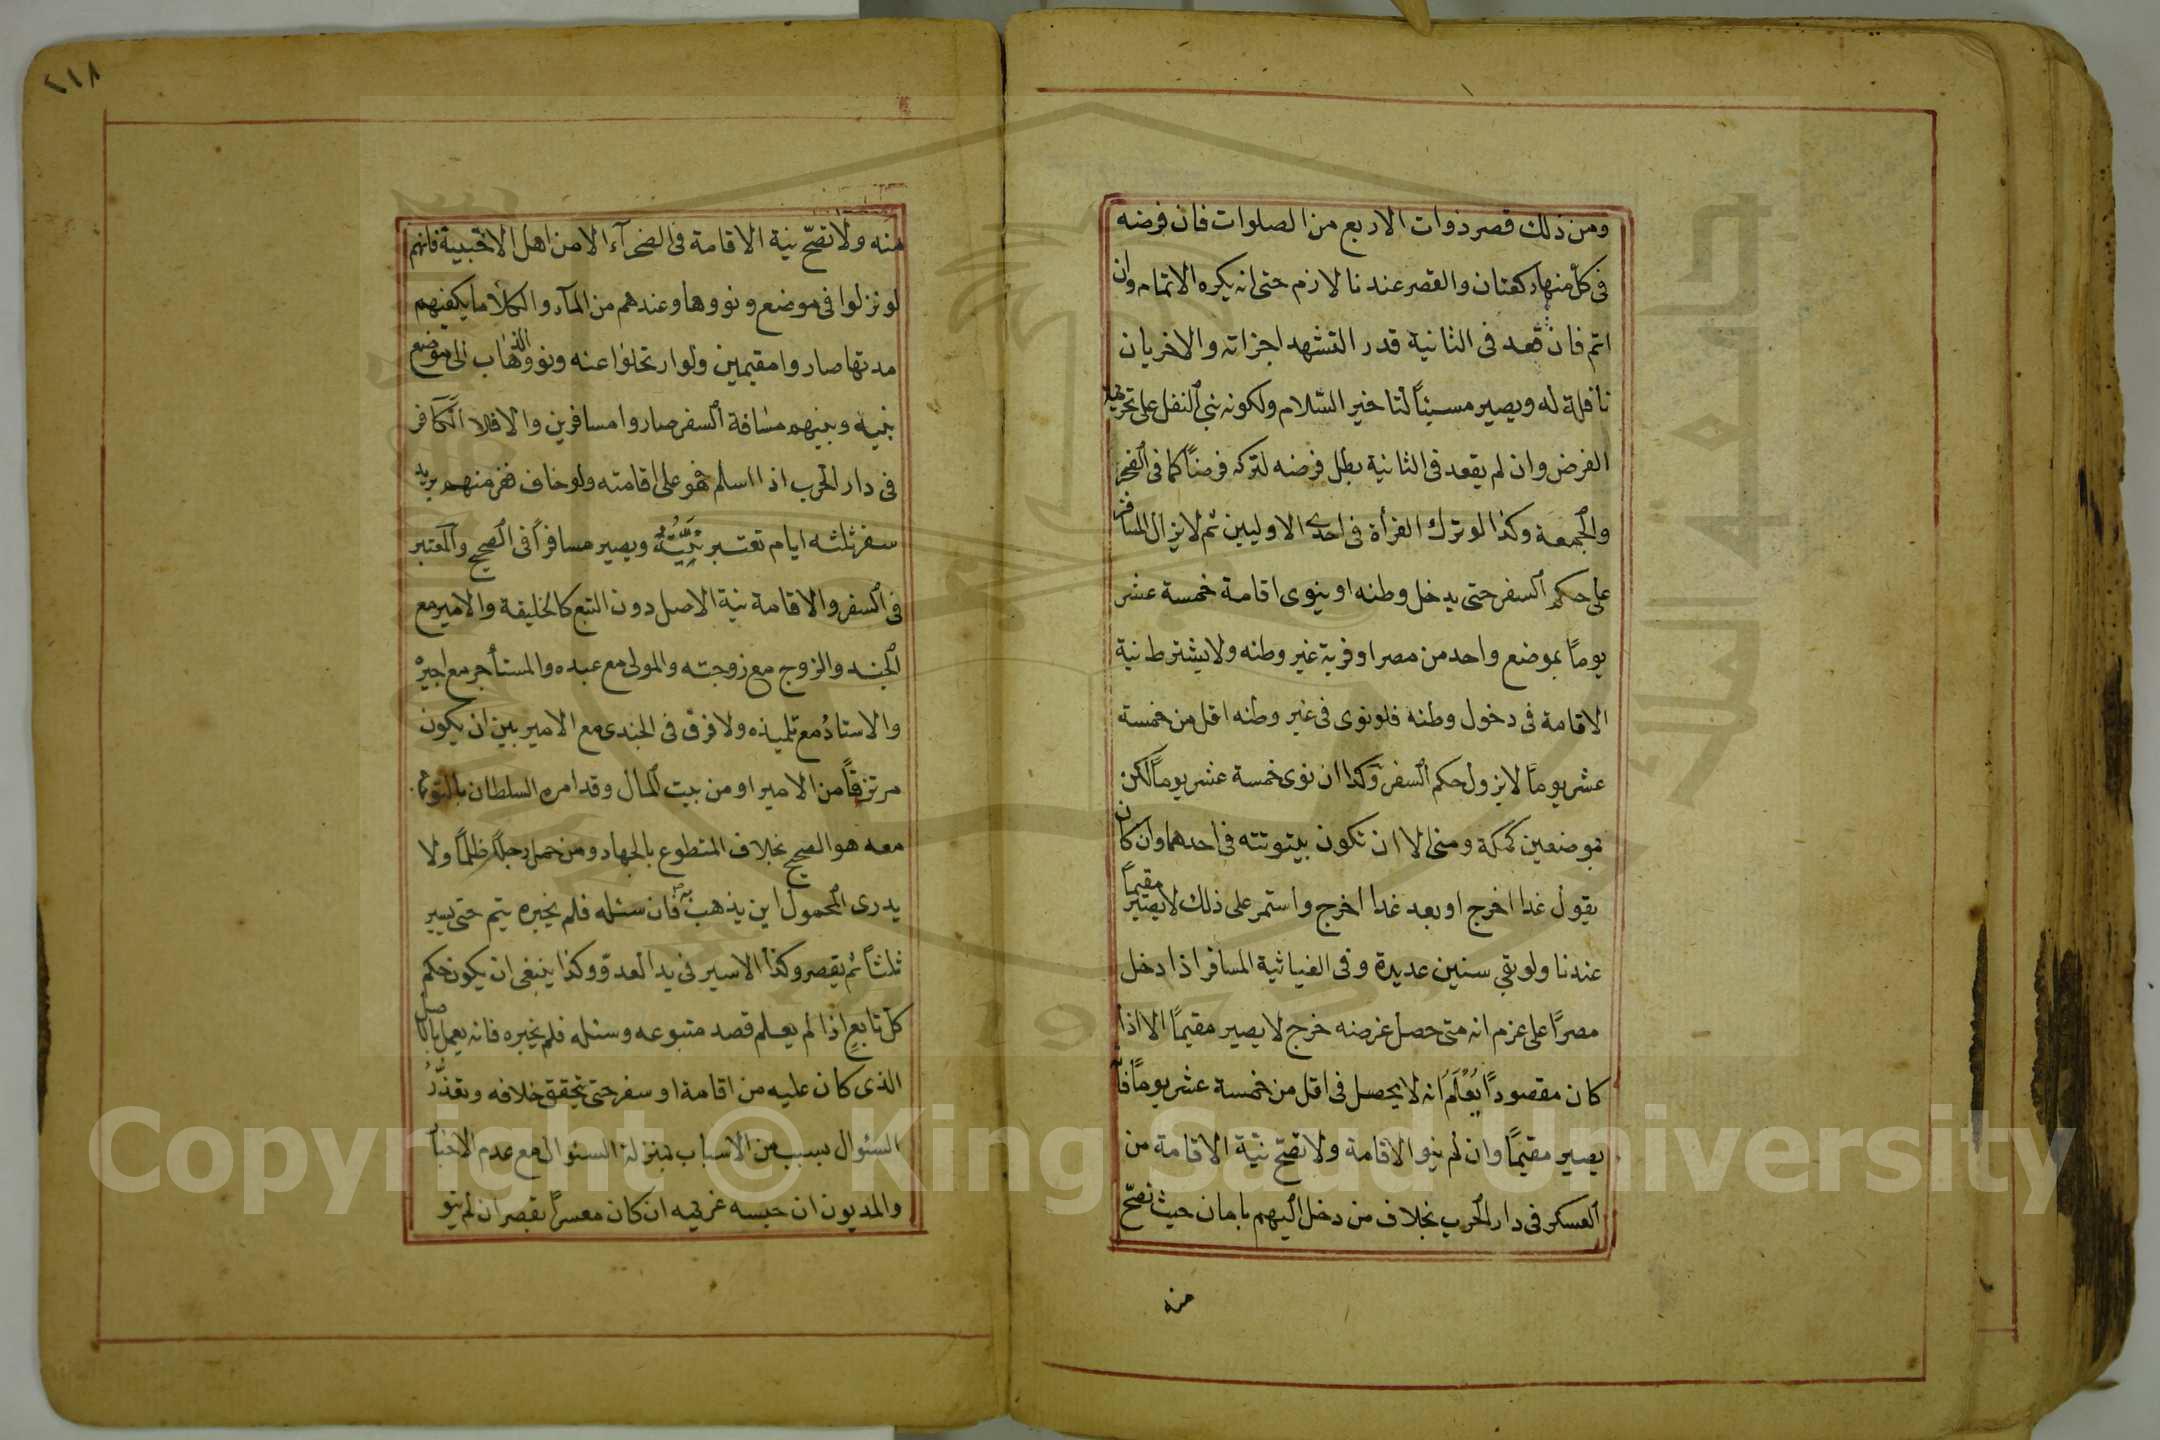 ومن ذلك قصر ذوات الاربع من الصلوات فان فرضه
فى كلّ منها ركعتان والقصر عندنا لازم حتى انه يكره الاتمام وان
اتم فان قعد فى الثانية قدر التشهد اجزاته والاخريان
نافلة له ويصير مسيئاً لتاخير السّلام ولكونه بنى النفل على تحريمة
الفرض وان لم يقعد فى الثانية بطل فرضه لتركه فرضاً كما فى الفجر
والجمعة وكذا لو ترك القرأة فى احدى الاوليين ثم لا يزال المسافر
على حكم السفر حتى يدخل وطنه او ينوى اقامة خمسة عشر
يوماً بموضع واحد من مصر او قرية غير وطنه ولا يشترط نية
الاقامة فى دخول وطنه فلو نوى فى غير وطنه اقل من خمسة
عشر يوماً لا يزول حكم السفر وكذا ان نوى خمسة عشر يوماً لكن
بموضعين كمكة ومنى الا ان تكون بيتوتته فى احدهما وان كان
يقول غدا اخرج او بعد غدا اخرج واستمر على ذلك لا يصير مقيماً
عندنا ولو بقى سنين عديدة وفى الغياثية المسافر اذا دخل
مصرًا على عزم انه متى حصل غرضه خرج لا يصير مقيمًا الا اذا
كان مقصودًا يُعْلَمُ انه لا يحصل فى اقل من خمسة عشر يومًا فانه
يصير مقيمًا وان لم ينو الاقامة ولا تصحّ نيّة الاقامة من
العسكر فى دار الحرب بخلاف من دخل اليهم بامان حيث تصحّ
منه
٢١٨
منه ولا تصحّ نية الاقامة فى الصحرآء الا من اهل الاخبية فانهم
لو نزلوا فى موضع ونووها وعندهم من المآء والكلاء ما يكفيهم
مدتها صاروا مقيمين ولو ارتحلوا عنه ونووا الذهاب الى موضع
بينه وبينهم مسافة السفر صاروا مسافرين والا فلا الكافر
فى دار الحرب اذا اسلم فهو على اقامته ولو خاف ففر منهم يريد
سفر ثلثه ايام تعتبر نِيَّتُهُ ويصير مسافراً فى الصحيح والمعتبر
فى السفر والاقامة نية الاصل دون التبع كالخليفة والامير مع
الجند والزوج مع زوجته والمولى مع عبده والمستأجر مع اجيره
والاستاذ مع تلميذه ولا فرق فى الجندى مع الامير بين ان يكون
مرتزقاً من الامير او من بيت المال وقد امره السلطان بالتوجه
معه هو الصحيح بخلاف المتطوع بالجهاد ومن حمل رجلًا ظلمًا ولا
يدرى المحمول اين يذهب به فان سئله فلم يخبره يتم حتى يسير
ثلثاً ثم يقصر وكذا الاسير فى يد العدوّ وكذا ينبغى ان يكون حكم
كل تابعٍ اذا لم يعلم قصد متبوعه وسئله فلم يخبره فانه يعمل بالاصل
الذى كان عليه من اقامة او سفر حتى يتحقق خلافه وتعذُّرُ
السئوال بسبب من الاسباب بمنزلة السئوال مع عدم الاخبار
والمديون ان حبسه غريمه ان كان معسراً يقصر ان لم ينو
Copyright © King Saud University